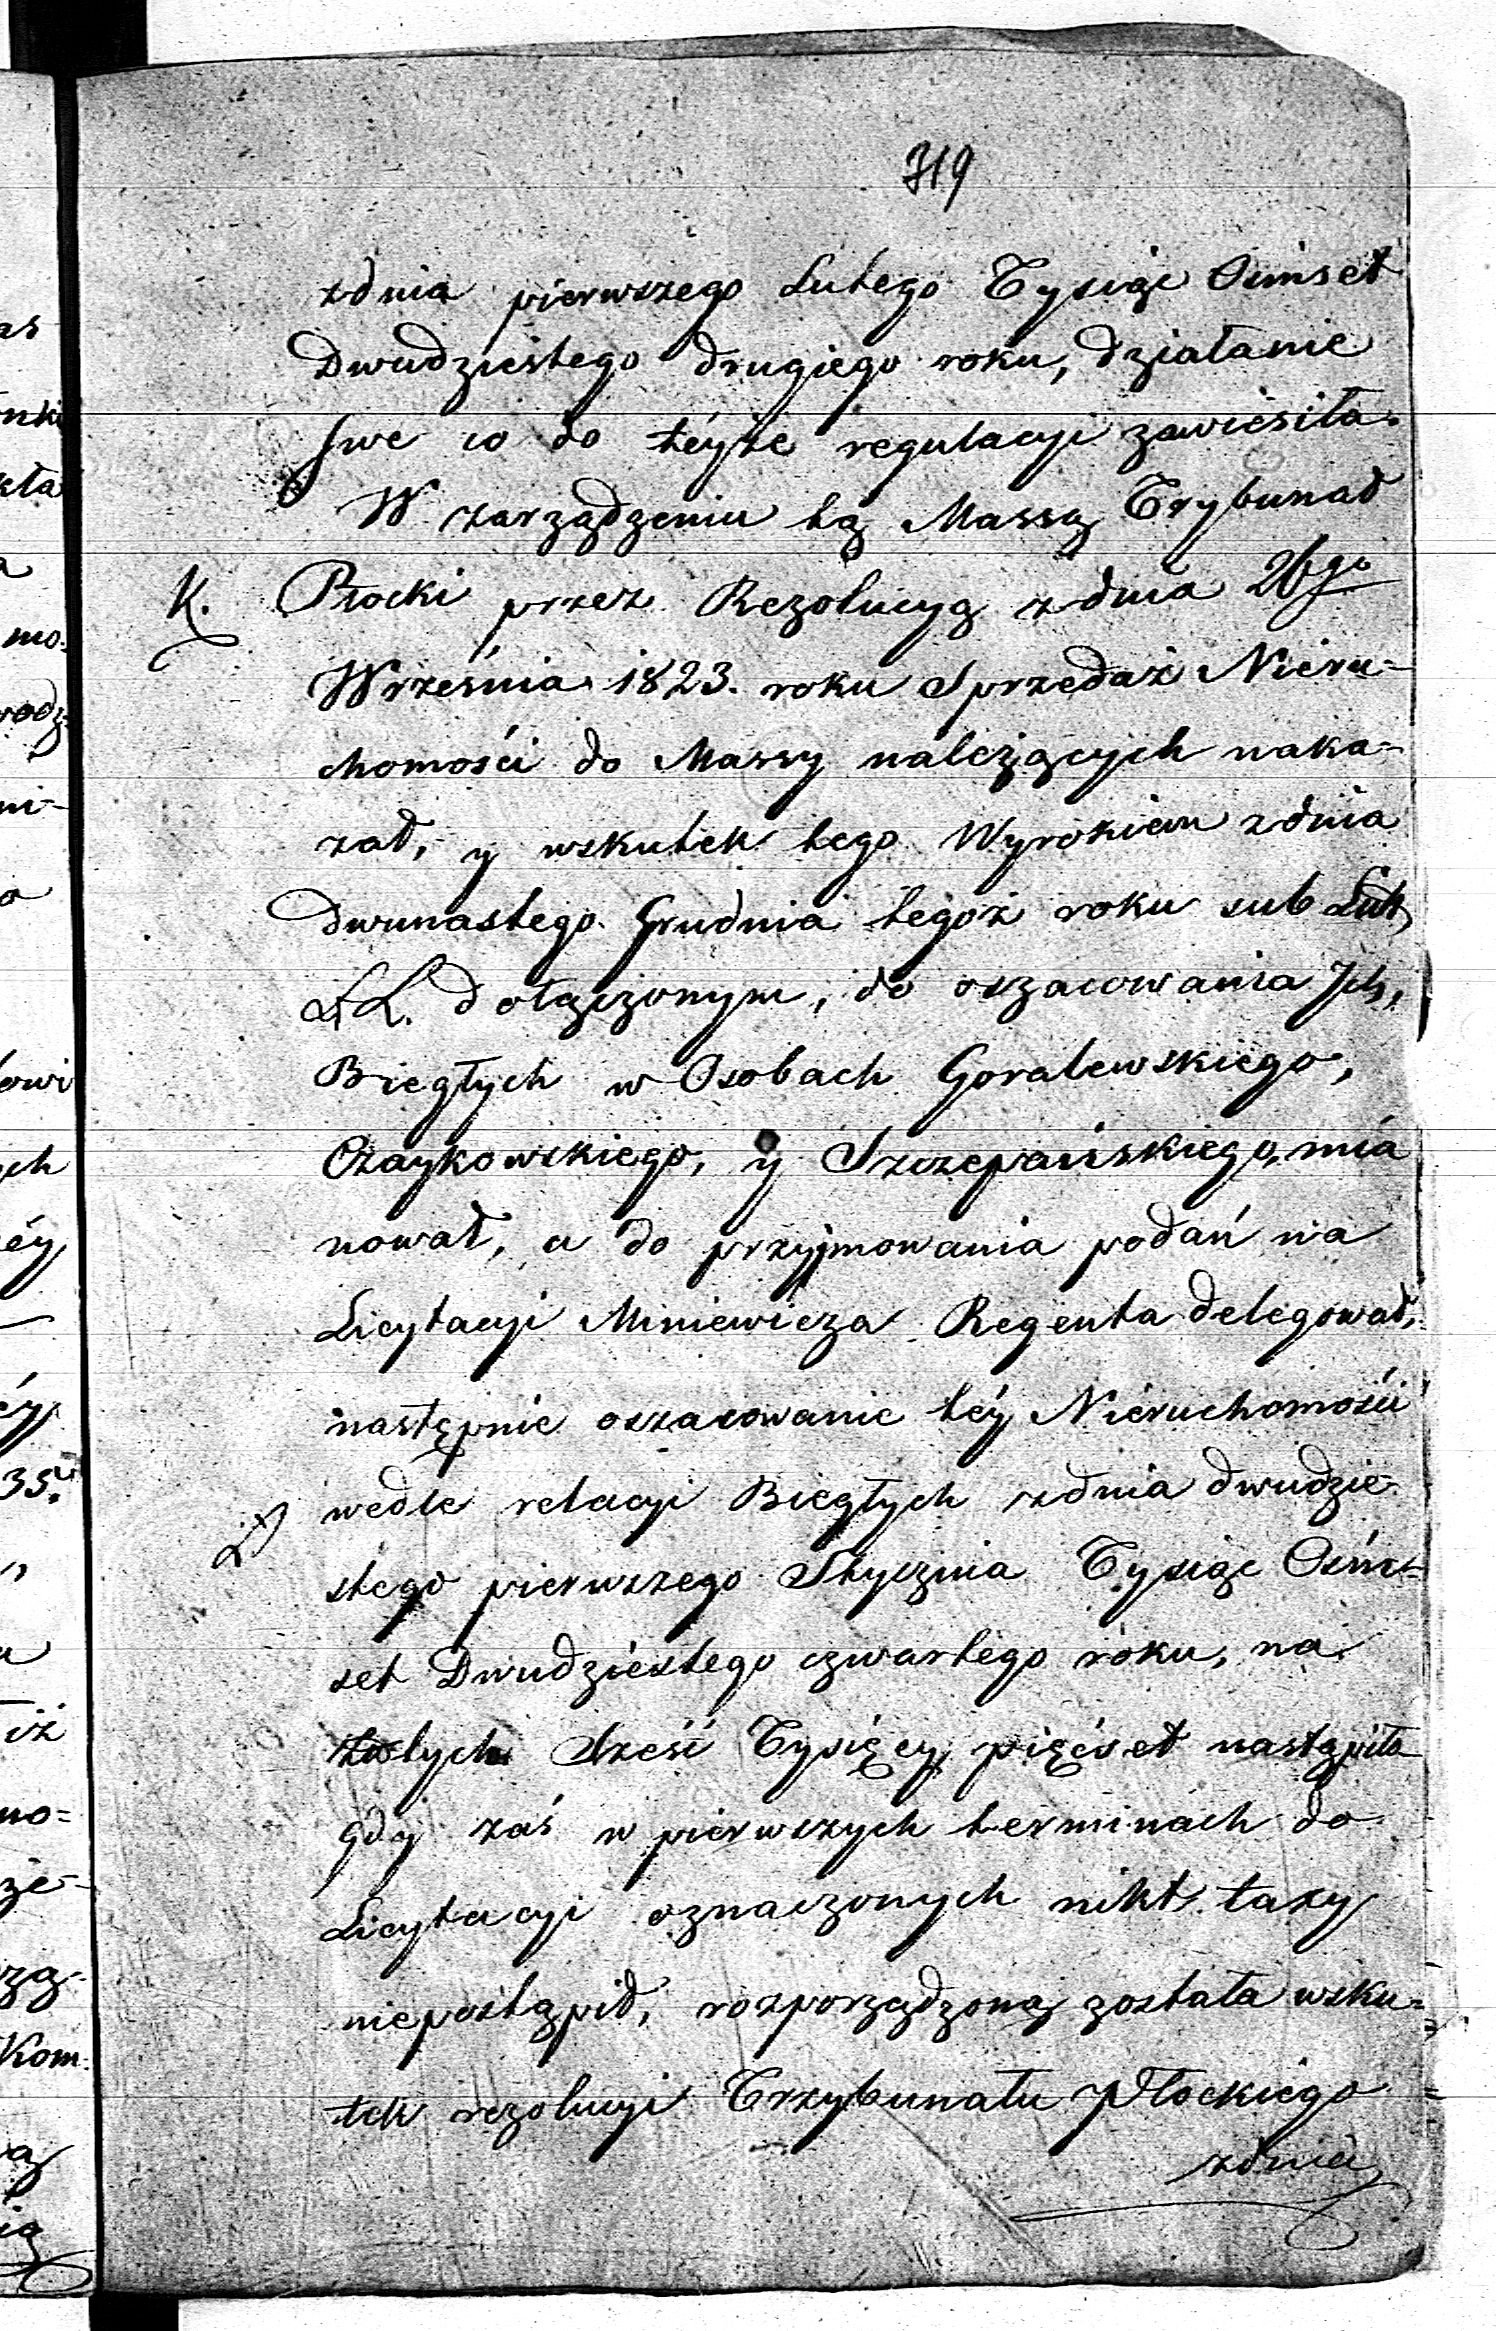 719
zdnia pierwszego Lutego Tysiąc Ośmset
Dwudziestego drugiego roku, działanie
swe co do téyże regulacyi zawiesiła.
W zarządzeniu tą Massą Trybunał
K. Płocki przez Rezolucyą zdnia 26go
Września 1823. roku Sprzedaż Nieru-
chomości do Massy należących naka-
zał, y wskutek tego Wyrokiem zdnia
dwunastego Grudnia tegoż roku sub Litt,
L. dołączonym, do oszacowania Ich,
Biegłych w Osobach Goralewskiego,
Czaykowskiego, y Szczepańskiego, mia
nował, a do przyjmowania podań na
Licytacyi Miniewicza Regenta delegował,
następnie oszacowanie téy Nieruchomości
wedle relacyi Biegłych zdnia dwudzie
stego pierwszego Stycznia Tysiąc Ośm-
set Dwudziestego czwartego roku, na
złotych Sześć Tysięcy pięćset nastąpiło
gdy zaś w pierwszych terminach do
Licytacyi oznaczonych nikt taxy
niepostąpił, rozporządzoną została wsku-
tek rezolucyi Trzybunału Płockiego
zdnia